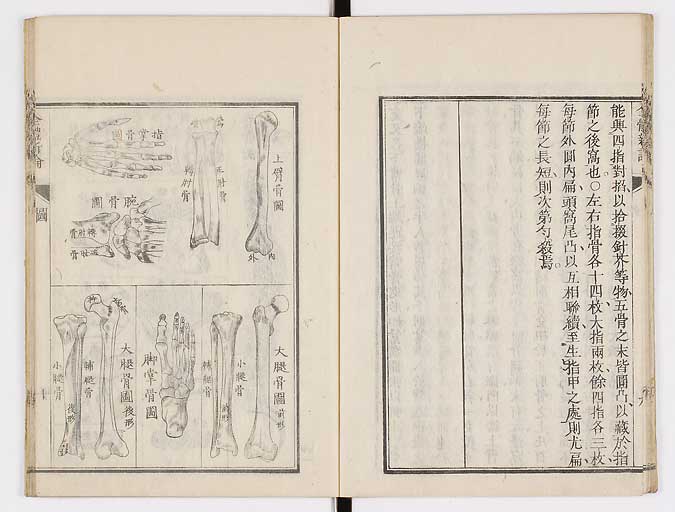 能與四指對搯以拾掇針芥等物五骨之末皆圓凸以藏於指
節之後窩也○左右指骨各十四枚大指兩枚餘四指各三枚
每節外圓內扁頭窩尾凸以互相聯續至生指甲之處則尤扁
每節之長短則次第勻殺焉
上臂骨圖
內
外
正肘骨
轉肘骨
指掌骨圖
腕骨圖
轉肘骨
正肘骨
大腿骨圖前形
小腿骨
前形
輔腿骨
腳掌骨圖
大腿骨圖後形
輔腿骨
小腿骨
後形